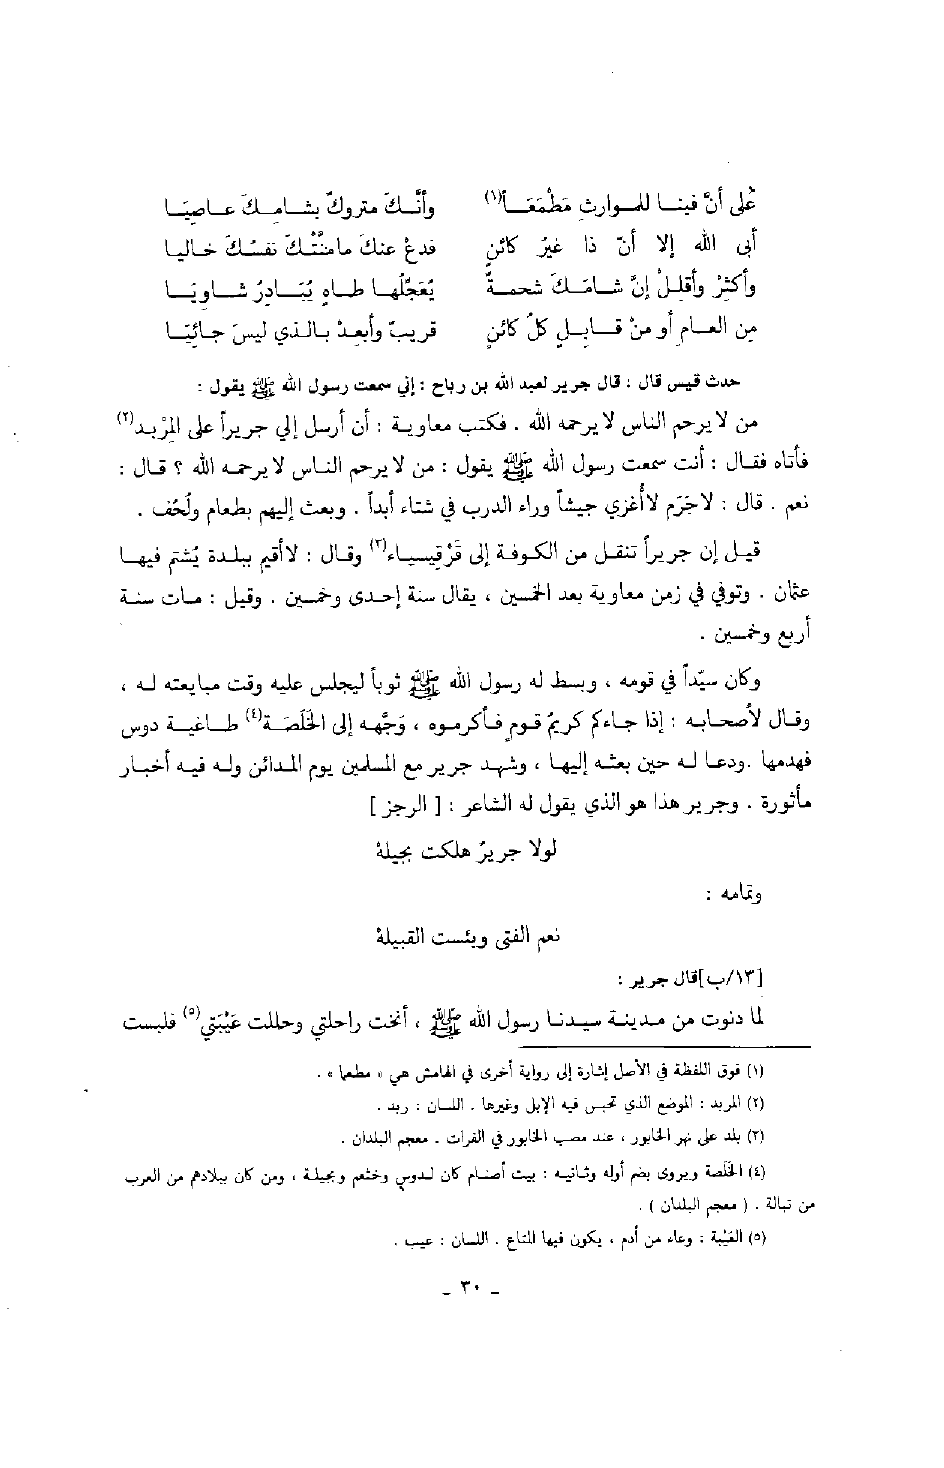 على أنَّ فينا للوارثِ مَطْمَعاً(١) وأنَّكَ متروكٌ بشامِكَ عاصِيَا
أبى الله إلا أنّ ذا غيرُ كائنٍ فدعْ عنكَ مامنَّتْكَ نفسُكَ خاليا
وأكثِرْ وأقلِلْ إنَّ شامَكَ شحمةٌ يُعَجِّلُها طاهٍ يُبَادِرُ شاوِيَا
من العام أو منْ قابلٍ كلُّ كائنٍ قريبٌ وأبعِدْ بالذي ليسَ جائيَا
حدث قيس قال : قال جرير لعبد الله بن رباح : إني سمعت رسول الله ﷺ يقول :
من لا يرحم الناس لا يرحمه الله . فكتب معاوية : أن أرسل إلي جريراً على المرْبد(٢)
فأتاه فقال : أنت سمعت رسول الله ﷺ يقول : من لا يرحم الناس لا يرحمه الله ؟ قال :
نعم . قال : لاجَرَم لاأُغزي جيشاً وراء الدرب في شتاء أبداً . وبعث إليهم بطعام ولُحُف .
قيل إن جريراً تنقل من الكوفة إلى قَرْقِيسياء(٣) وقال : لاأقيم ببلدة يُشتم فيها
عثمان . وتوفي في زمن معاوية بعد الخمسين ، يقال سنة إحدى وخمسين . وقيل : مات سنة
أربع وخمسين .
وكان سيّداً في قومه ، وبسط له رسول الله ﷺ ثوباً ليجلس عليه وقت مبايعته له ،
وقال لأصحابه : إذا جاءكم كريمُ قومٍ فأكرموه ، وَجَّهه إلى الخَلَصَة(٤) طاغية دوس
فهدمها .ودعا له حين بعثه إليها ، وشهد جرير مع المسلمين يوم المدائن وله فيه أخبار
مأثورة . وجرير هذا هو الذي يقول له الشاعر : [ الرجز ]
لولا جريرٌ هلكت بجيلهْ
وتمامه :
نعم الفتى وبئست القبيلهْ
[١٣/ب]قال جرير :
لما دنوت من مدينة سيدنا رسول الله ﷺ ، أنخت راحلتي وحللت عَيْبَتي(٥) فلبست
(١) فوق اللفظة في الأصل إشارة إلى رواية أخرى في الهامش هي « مطمعا » .
(٢) المربد : الموضع الذي تحبس فيه الإبل وغيرها . اللسان : ربد .
(٣) بلد على نهر الخابور ، عند مصب الخابور في الفرات . معجم البلدان .
(٤) الخَلَصة ويروى بضم أوله وثانيه : بيت أصنام كان لدوس وخثعم وبجيلة ، ومن كان ببلادهم من العرب
من تبالة . ( معجم البلدان ) .
(٥) العَيْبَة : وعاء من أدم ، يكون فيها المتاع . اللسان : عيب .
ـ ٣٠ ـ